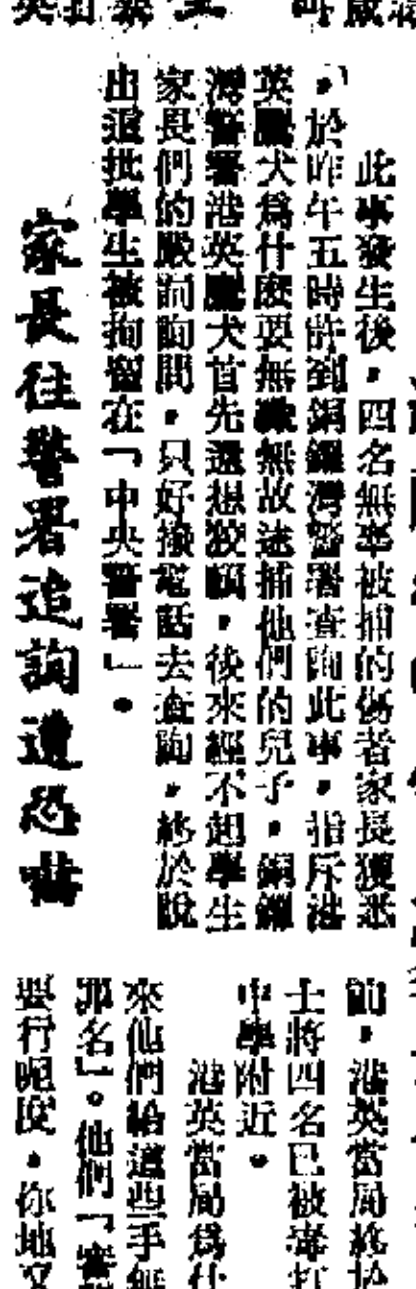 此事發生後，四名無辜被捕的傷者家長獲悉
，於昨午五時許到銅鑼灣警署查詢此事，指斥港
英鷹犬爲什麼要無緣無故逮捕他們的兒子，銅鑼
灣警署港英鷹犬首先還想狡賴，後來經不起學生
家長們的嚴詞詢問，只好撥電話去查詢，終於說
出這批學生被拘留在「中央警署」。
家長往警署追詢遭恐嚇
前，港英當局終於
士將四名已被毒打
中學附近。
港英當局爲什
來他們給這些手無
罪名」。他們「審
要行呢度，你地又